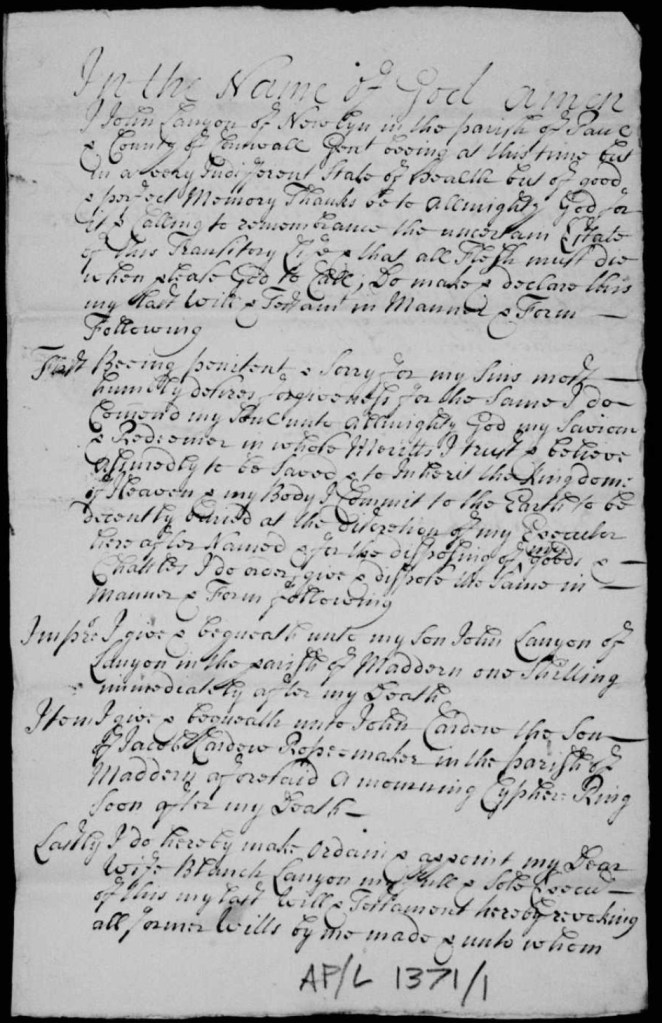 In the Name of God amen
I John Lanyon of Newlyn in the parish of Paul
& County of Cornwall Gent beeing at this time but
in a very Indifferent State of health but of good
& perfect Memory Thanks be to Allmighty God for
it & Calling to remembrance the uncertain Estate
of this Transitory Life & that all Flesh must die
when please God to Call; Do make & declare this
my last Will & Testamt in Manner & Form
Following
First Beeing penitent & Sorry for my Sins most
humbly desires forgiveness for the Same I do
Comend my Soul unto Allmighty God my Saviour
& Redeemer in whose Meritts I trust & believe
Assuredly to be Saved & to Inherit the Kingdome
of Heaven & my Body I Commit to the Earth to be
decently buried at the discretion of my Executor
here after Named & for the disposing of my goods &
Chattles I do order, give & dispose the Same in
Manner & Form following
Imprs I give & bequeath unto my Son John Lanyon of
Lanyon in the parish of Maddern one Shilling
immediately after my Death
Item I give & bequeath unto John Cardew the Son
of Jacob Cardew Ropeemaker in the parish of
Maddern aforesaid A mourning Cypher Ring
Soon after my Death
Lastly I do hereby make Ordain & appoint my Dear
Wife Blanch Lanyon my full & Sole Execu
of this my last Will & Testament hereby revoking
all former Wills by me made & unto whom
AP/L 1371/1